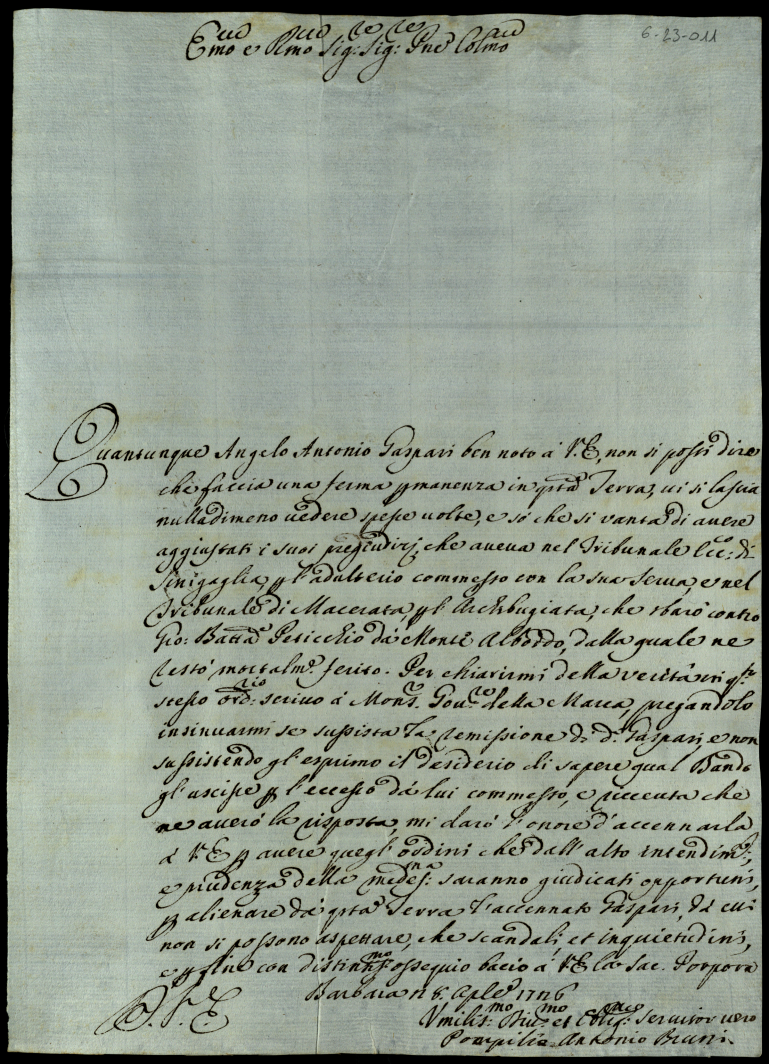 6-23-011
Emo e Rmo Sig: Sig: Pne Colmo
Quantunque Angelo Antonio Gaspari ben noto à V.E., non si possi dire
che faccia una ferma pmanenza in qsta Terra, ui si lascia
nulladimeno uedere spesse uolte, e sò che si vanta di auere
aggiustati i suoi pregiudizj, che aueua nel Tribunale Ecc: di
Sinigaglia, p l'adulterio commesso con la sua Serua, e nel
Tribunale di Macerata, p l'Archibugiata, che sbarò contro
Gio: Batta Peticchio da Monte Alboddo, dalla quale ne
restò mortalme. ferito. Per chiarirmi della verità in qsto
stesso ordrio: scriuo à Mons. Goure della Marca, pregandolo
insinuarmi se sussista la remissione di d. Gaspari, e non
sussistendo gl'esprimo il desiderio di sapere qual Bando
gl'uscisse p l'eccesso da lui commesso, e riceuta che
ne auerò la risposta, mi darò l'onore d'accennarla
à V.E. p auere quegl'ordini che dall'alto intendimto,
e prudenza della medesma: saranno giudicati opportuni,
p alienare da qsta Terra l'accennato Gaspari, da cui
non si possono aspettare, che scandali et inquietudini,
e p fine con distintissmo ossequio bacio à V.E. la Sac. Porpora
Barbara li 6. Aple 1726
D. V. E.
Vmiliss:mo Diu:mo et Obligmo: Seruitor uero
Pompilio Antonio Bruni